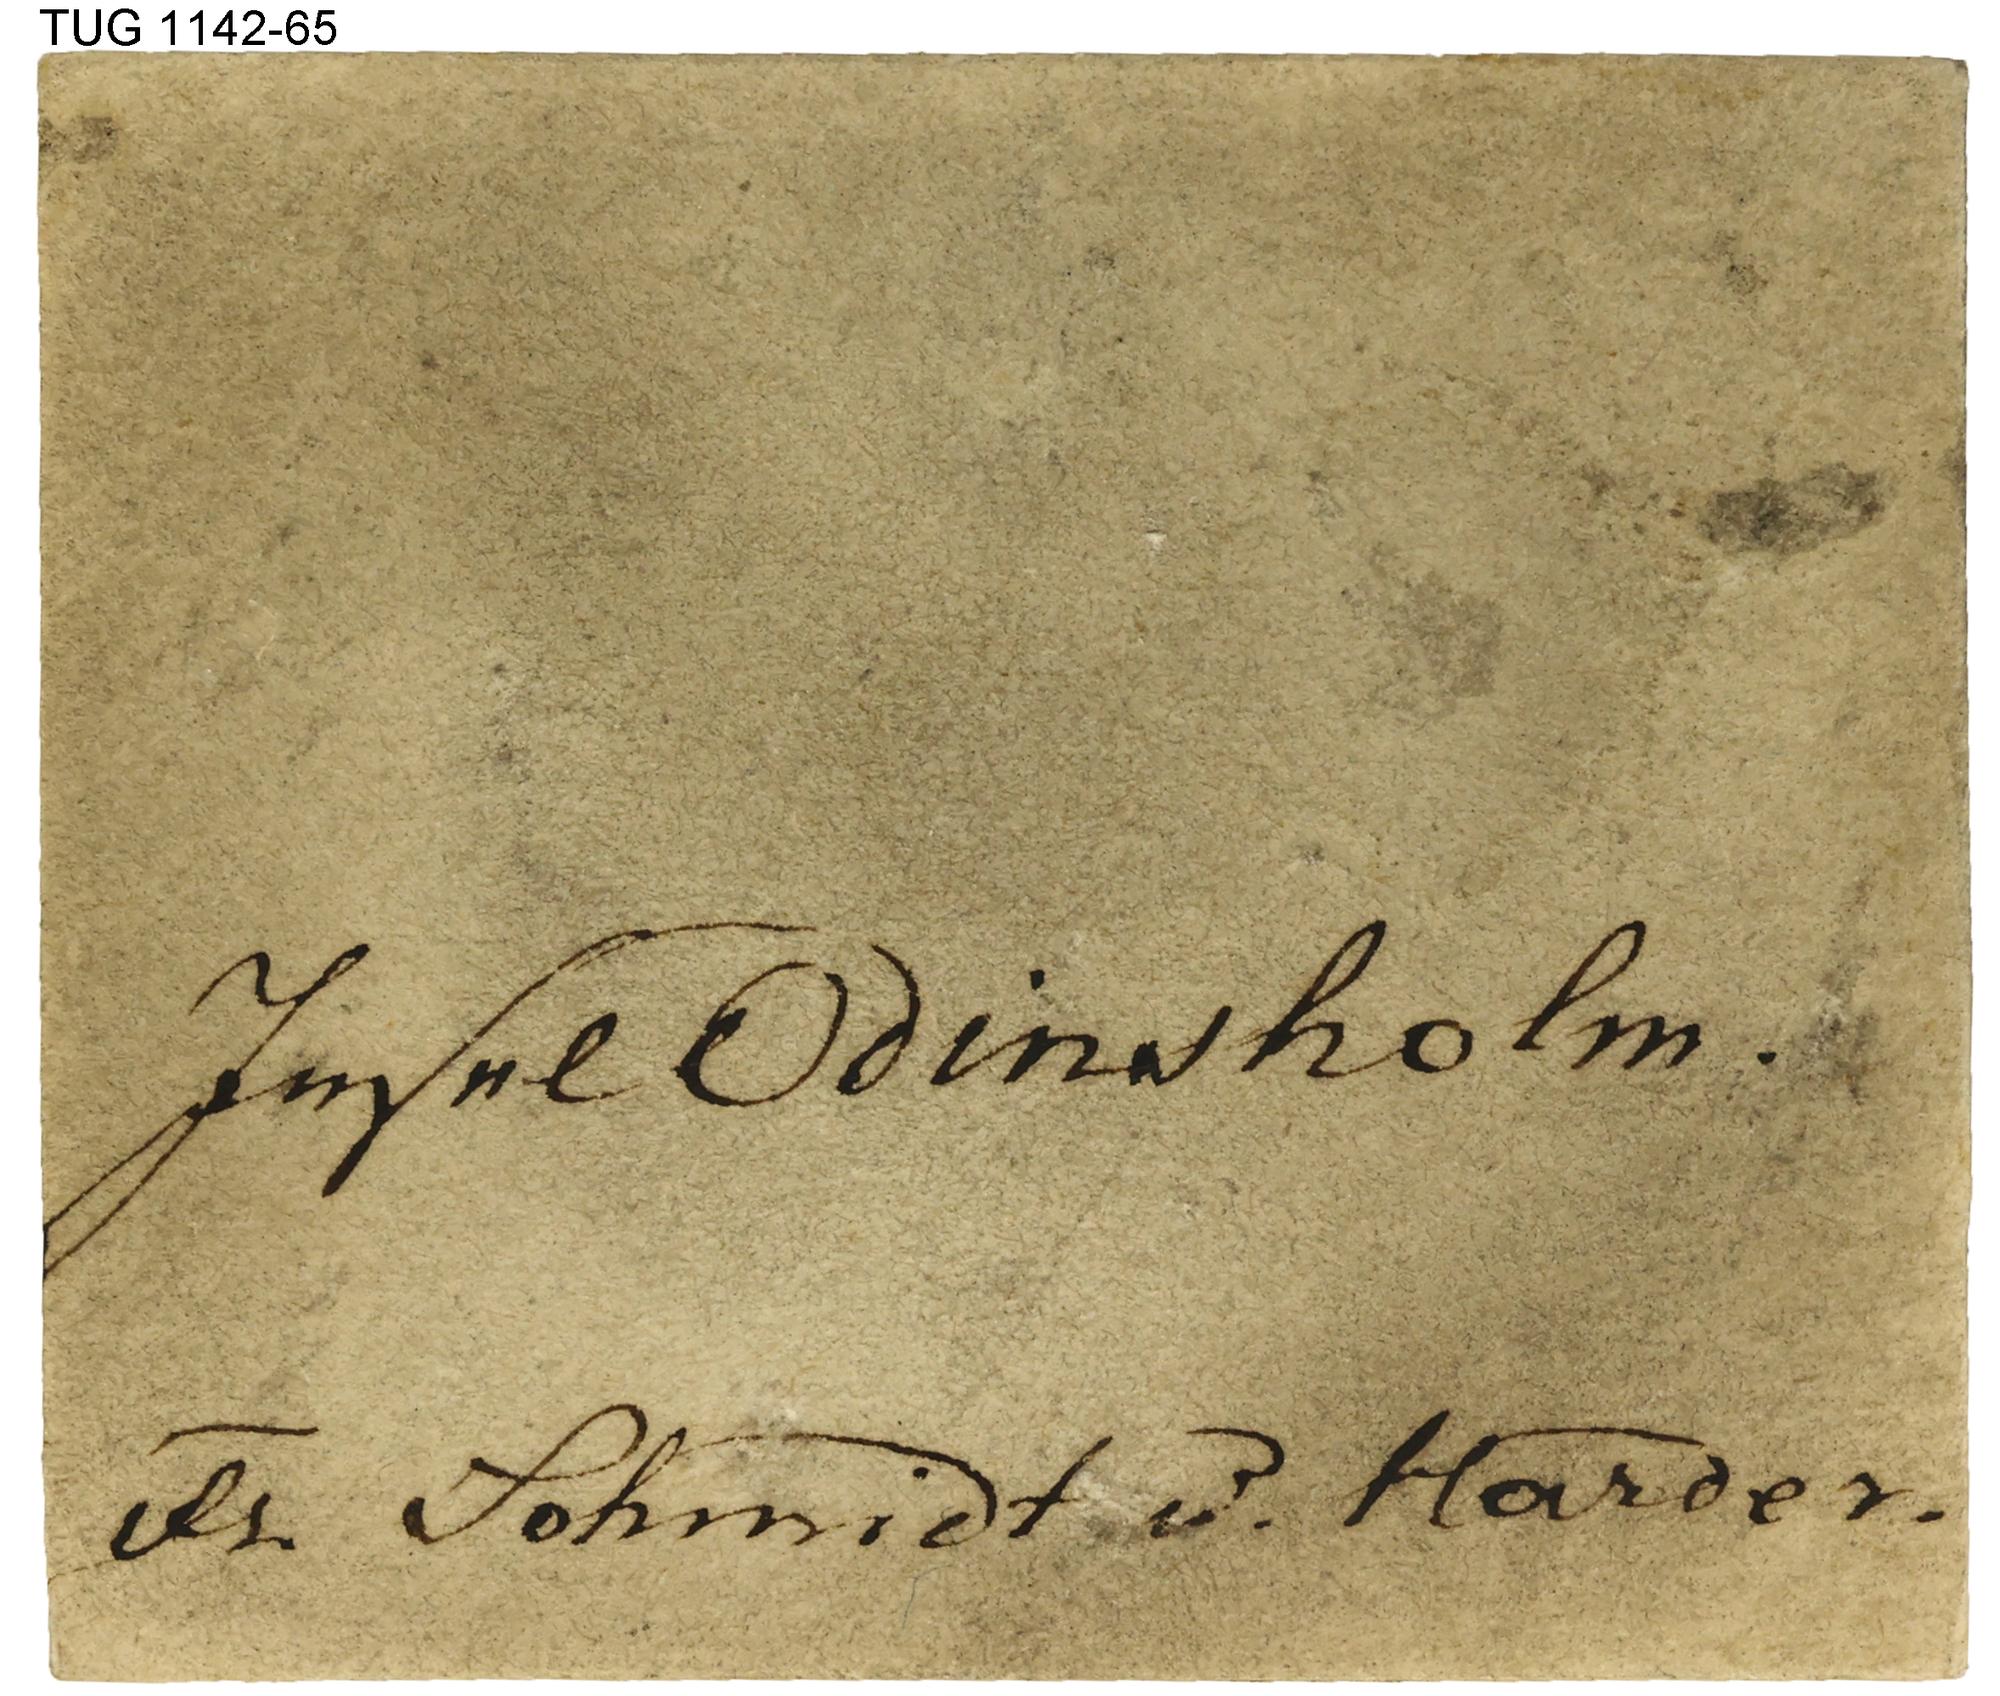 TUG 1142-65
Insel Odinsholm.
Fr Schmidt u. Harder.